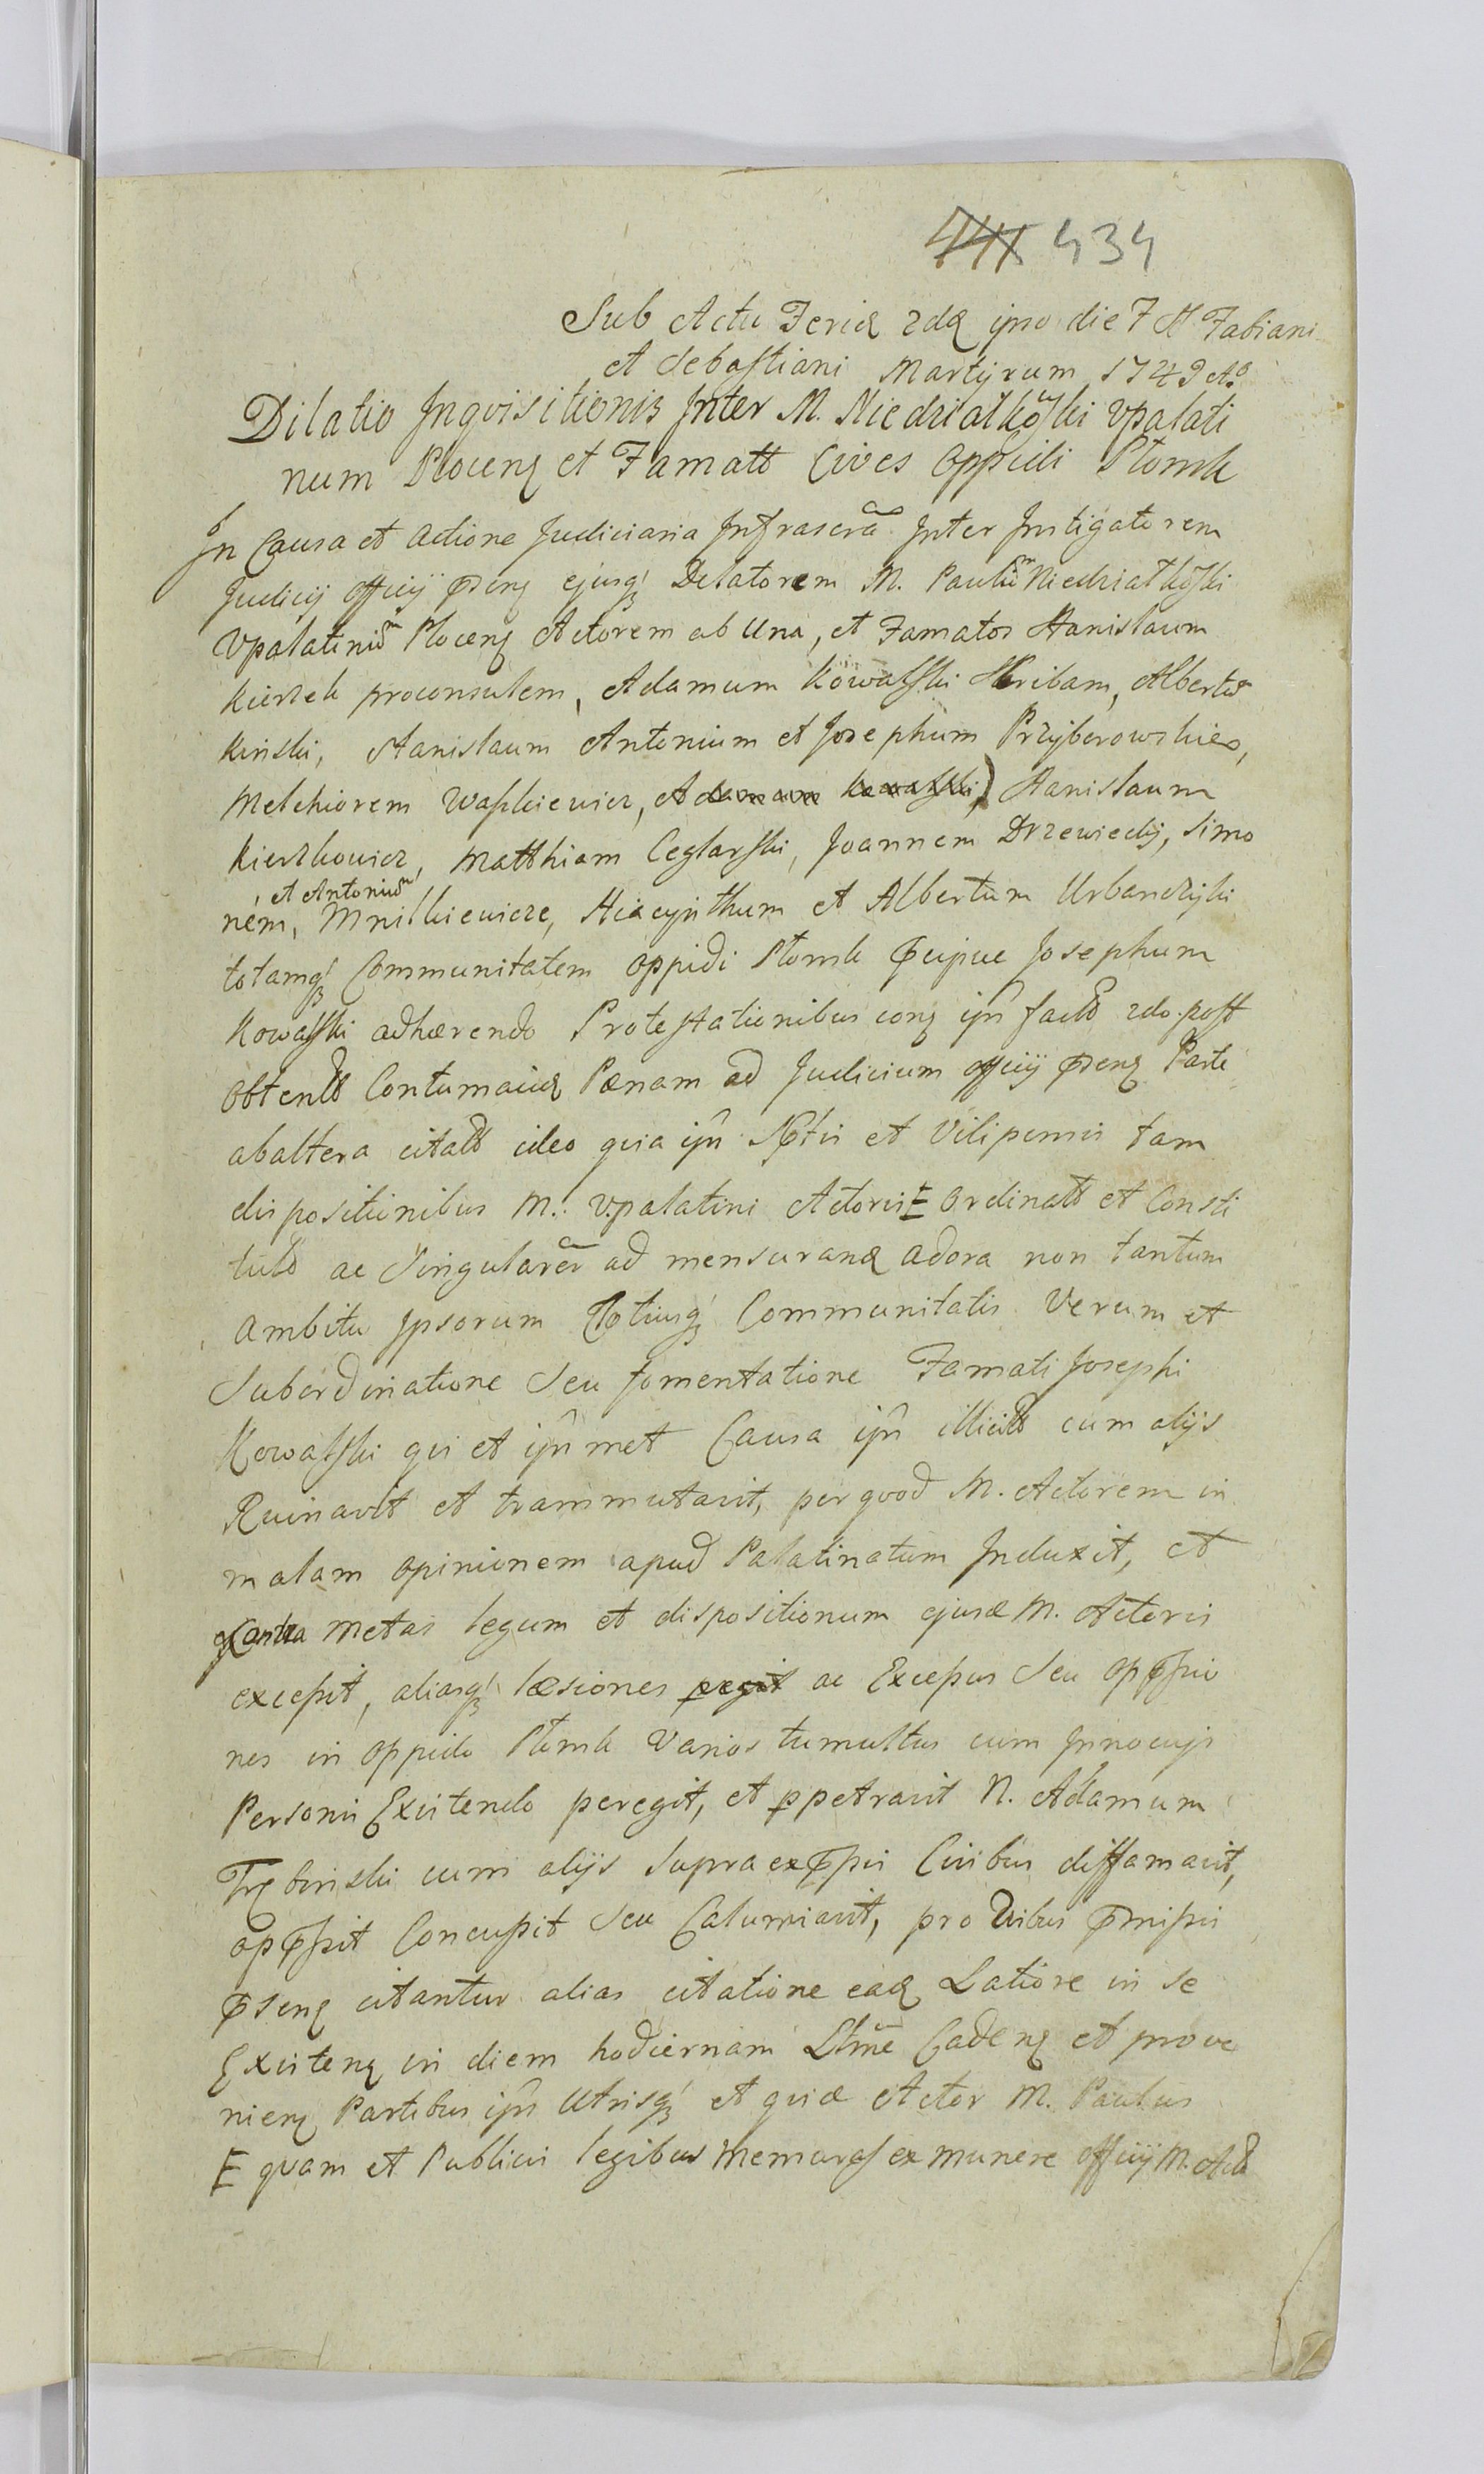 434
Sub Actu Feriæ 2dæ ipso die F SS Fabiani
et Sebastiani Martyrum 1749 Ao
Dilatio Inqvisitionis Inter M. Niedziałkoski Vpalati
num Plocen et Famatt Cives Oppidi Płonsk
In Causa et Actione Judiciaria Infrascra Inter Instigatorem
Judicij officij psen ejusq Delatorem M. Paulum Niedziałkoski
Vpalatinum Plocen Actorem ab Una, et Famatos Stanislaum
Kierzek proconsulem, Adamum Kowalski Scribam, Albertum
Kinski, Stanislaum Antonium et Josephum Przyborowskies,
Melchiorem Waskiewicz, Adamum Kowalski, Stanislaum
Kierzkowicz, Matthiam Ceglarski, Joannem Drzewiecky, Simo
et Antonium
nem, Mnilkiewicze, Hiacynthum et Albertum Urbanczyki
totamq Communitatem oppidi Płonsk
Josephum
Kowalski adhærendo Protestationibus con ipn factt 2do post
obtentt Contumaciæ Pænam ad Judicium officij psen Parte
abaltera citatt ideo quia ipn et Vilipensis tam
dispositionibus M. Vpalatini Actoris E Ordinatt et Consti
tutt ac Singularer ad mensurand adora non tantum
Ambitu Ipsorum Totiusq Communitatis Verum et
Subordinatione Seu fomentatione Famati Josephi
Kowalski qui et ipnmet Causa ipn illicitt cum alijs
Ruinavit et transmutavit, per quod M. Actorem in
malam opinionem apud Palatinatum Induxit, et
Contra Metas legum et dispositionum ejusd M. Actoris
excessit, aliasq læsiones pegit ac Excessus Seu oppssio
nes in oppido Płonsk Varios tumultus cum Innocuys
Personis Excitendo peregit, et ppetravit N. Adamum
Trębinski cum alijs Supraexpssis Civibus diffamavit,
oppssit Concussit Seu Calumniavit, pro quibus pmissis
psen citantur alias citatione ead Latiore in se
Existen in diem hodiernam Ltme Caden et prove
nien Partibus ipn Utrisq et quia Actor M. Paulus
E quam et Publicis legibus ex munere officij M. Actt